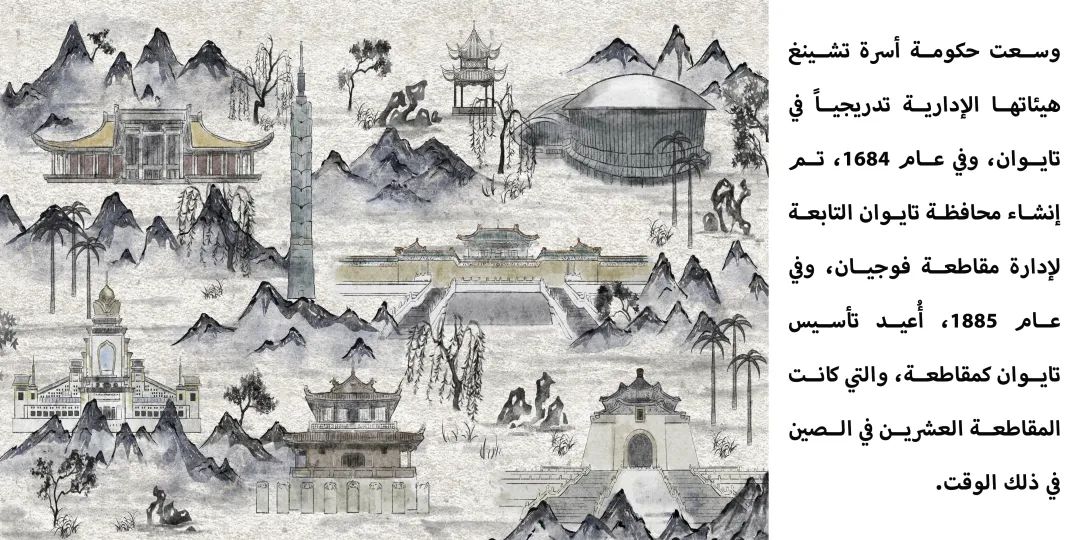 وسعت حكومة أسرة تشينغ
هيئاتها الإدارية تدريجياً في
تايوان، وفي عام 1684، تم
إنشاء محافظة تايوان التابعة
لإدارة مقاطعة فوجيان، وفي
عام 1885، أُعيد تأسيس
تايوان كمقاطعة، والتي كانت
المقاطعة العشرين في الصين
في ذلك الوقت.